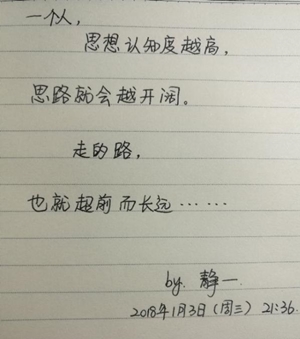 一个人，
思想认知度越高，
思路就会越开阔。
走的路，
也就超前而长远……
by. 静一.
2018年1月3日(周三) 21:36.